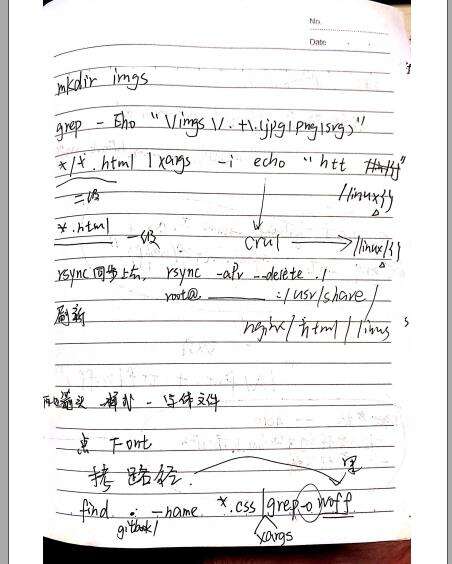 No.
Date
mkdir imgs
grep -Eho "\/imgs\/.+\.(jpg|png|svg)"
*/*.html | xargs -i echo "htt
//linux{}
二级
*.html 一级
crul //linux/{}
rsync 同步上去, rsync -aPv --delete ./
root@. :/usr/share/
刷新
nginx/html/linus
字体文件
点 Font
拷路径.
里
find . -name *.css | grep -o woff
gitbook/
xargs